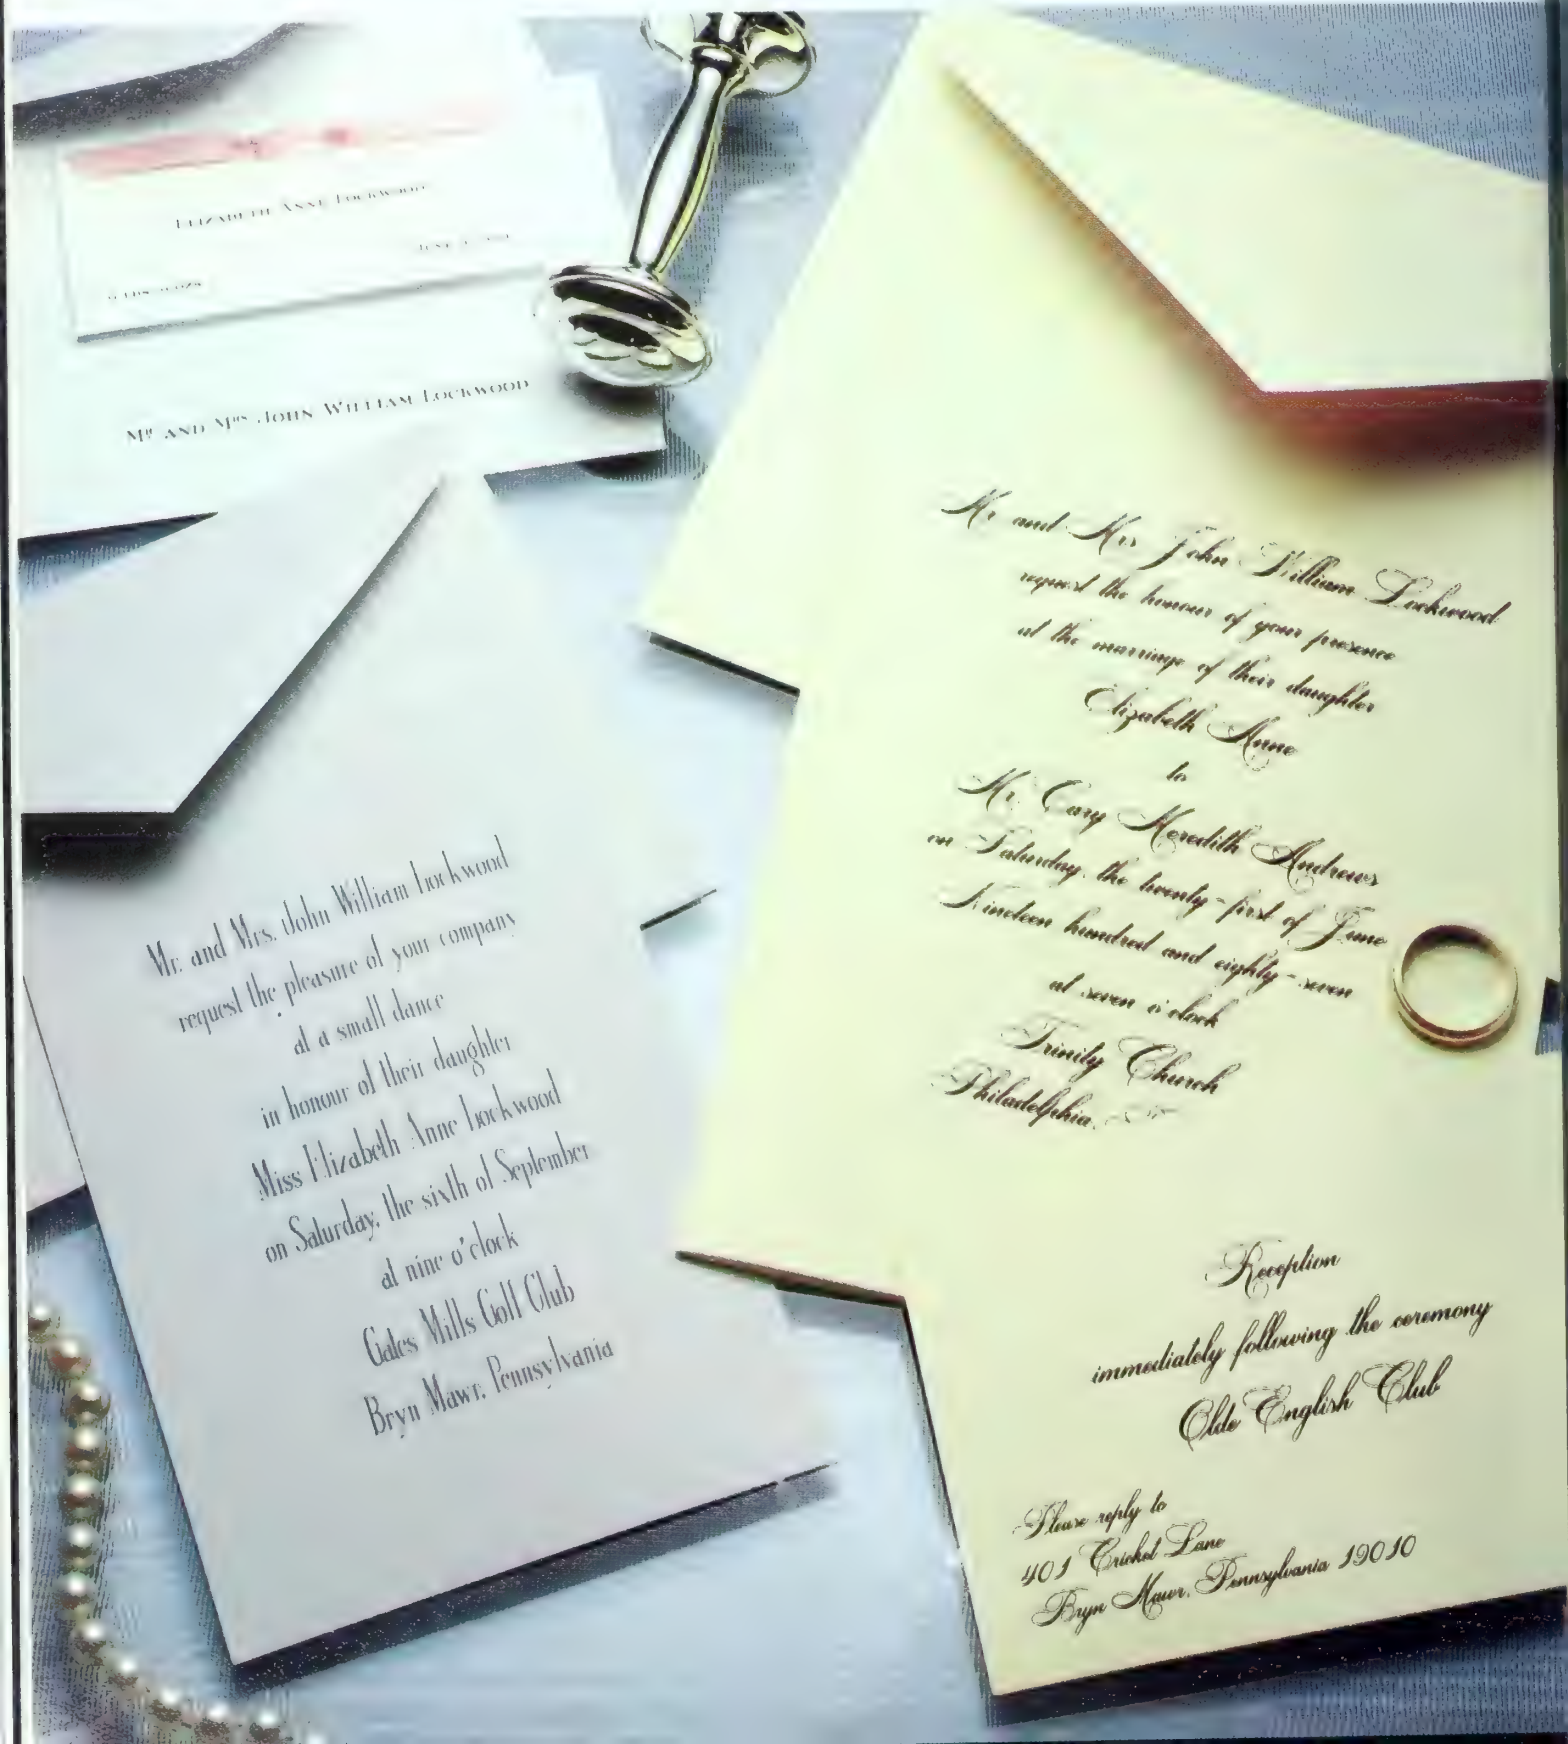 ELIZABETH ANNE LOCKWOOD
JUNE
Mr. AND Mrs. JOHN WILLIAM LOCKWOOD
Mr. and Mrs. John William Lockwood
request the pleasure of your company
at a small dance
in honour of their daughter
Miss Elizabeth Anne Lockwood
on Saturday, the sixth of September
at nine o'clock
Gates Mills Golf Club
Bryn Mawr, Pennsylvania
Mr and Mrs John William Lockwood
request the honour of your presence
at the marriage of their daughter
Elizabeth Anne
to
Mr. Cary Meredith Andrews
on Saturday, the twenty-first of June
Nineteen hundred and eighty-seven
at seven o'clock
Trinity Church
Philadelphia,
Reception
immediately following the ceremony
Olde English Club
Please reply to
401 Cricket Lane
Bryn Mawr, Pennsylvania 19010